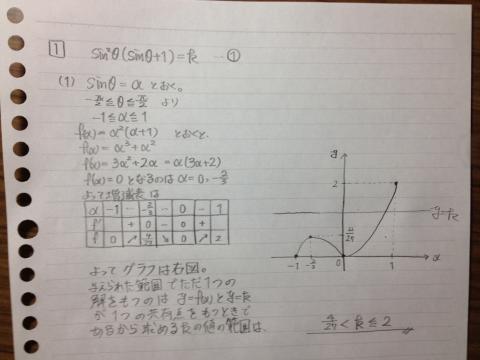 1 sin²θ(sinθ+1)=k …①
(1) sinθ=αとおく。
-π/2≦θ≦π/2 より
-1≦α≦1
f(α)=α²(α+1) とおくと、
f(α)=α³+α²
f'(α)=3α²+2α=α(3α+2)
f'(α)=0となるのはα=0,-2/3
よって増減表は
α -1 … -2/3 … 0 … 1
f' + 0 - 0 +
f 0 ↗ 4/27 ↘ 0 ↗ 2
よってグラフは右図。
与えられた範囲でただ1つの
解をもつのは y=f(α)とy=k
が1つの共有点をもつときで
あるから求めるkの値の範囲は、
y
2
4/27
y=k
-1 -2/3 0 1 α
4/27<k≦2